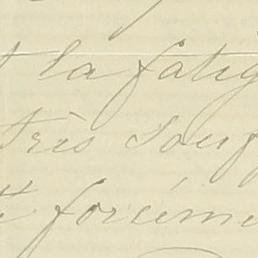 la fatig
très souf
forcém